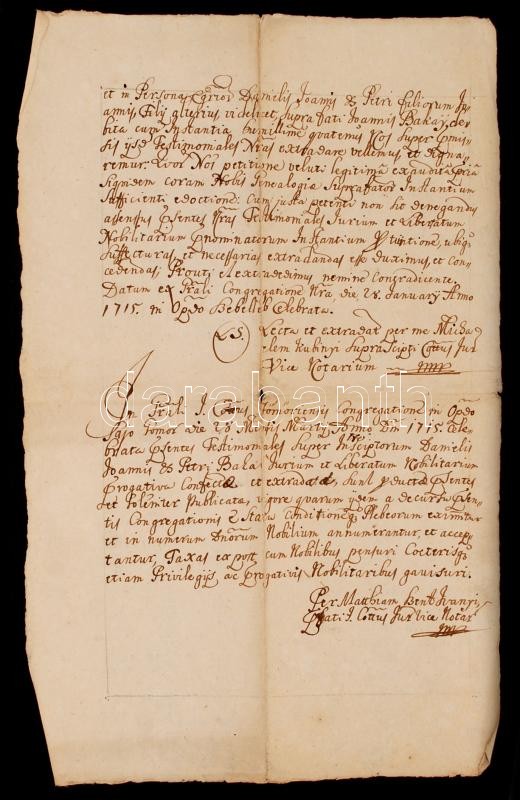 et in Persona Egrior Danielis Joannis & Petri Filiorum Jo
annis, Filij alterius videlicet, supra dati Joannis Bakaj, de
bita cum Instantia humillime quatenus Nos super praemis
sis ijsde Testimoniales Nras extradare vellemus et Digna
remur. Quor Nos petitione veluti legitima exaudita
Siquidem coram Nobis Genealogia Instantium
sufficienti edoctione. Cum justa petenti non sit denegandus
assensus Psentes Nras Testimoniales Jurium et Libertatum
Nobilitarium Instantium
et necessarias extradandas esse duximus, et con
cedendas Prouti et extradedimus nemine Contradicente
Datum ex Grali Congregatione Nra die 28. January Anno
1715. in Oppdo Celebrata.
L.S. Lecta et extradat per me Micha
elem Kubinyi Supra Scipti Cottus Jur
Vice Notarium
darabanth
In Grali I. Cottus Gomoriensis Congregatione in Oppdo
Sajo Gomor die 28 Mensis Marty Anno Dni 1715. Cele
brata Psentes Testimoniales Super Inscriptorum Danielis
Joannis & Petri Baka Jurium et Libertatum Nobilitarium
Progativa Confectae et extradatae, sunt Psentes
et Publicata, vigore quarum ijdem a decursu Psen
tis Congregationis e Statu Plebeorum eximitur
et in numerum Dnorum Nobilium annumerantur, et accep
tantur, Taxas ex post cum Nobilibus pensuri Coeterisq3
etiam Privilegijs ac Progativis Nobilitaribus gavisuri.
Per Matthiam Ivanyi,
Pfati I. Cottus Jur Vice Notar